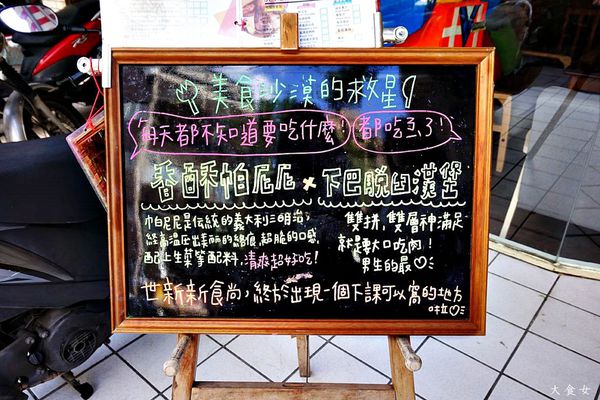 美食沙漠的救星
每天都不知道要吃什麼! 都吃ㄤ了!
香酥帕尼尼 × 下巴脫臼漢堡
帕尼尼是傳統的義大利三明治,
經高溫压出美丽的線條,超脆的口感,
配上生菜等配料,清爽超好吃!
雙拼,雙層神滿足
就是要大口吃肉!
男生的最♡
世新新食尚,終於出現一個下課可以窩的地方
啦♡
大食女